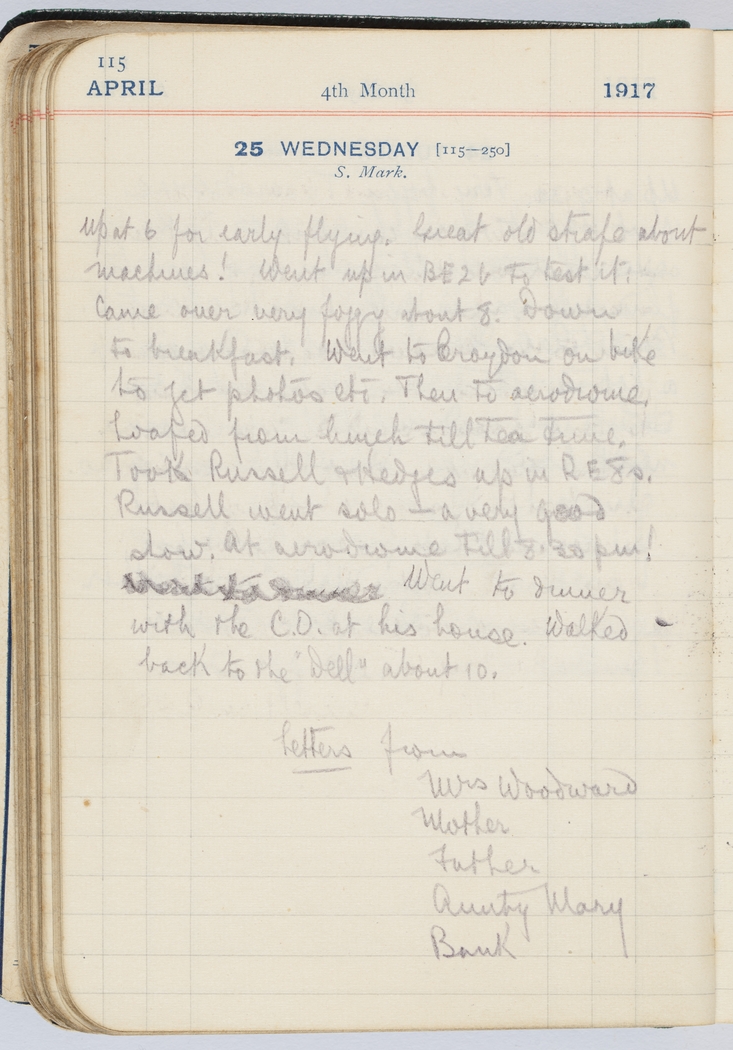 115
APRIL 4th Month 1917
25 WEDNESDAY [115—250]
S. Mark.
Up at 6 for early flying. Great old strafe about
machines! Went up in BE2b to test it.
Came over very foggy about 8. Down
to breakfast. Went to Croydon on bike
to get photos etc. Then to aerodrome.
Loafed from lunch till Tea Time.
Took Russell & Hedges up in RE8s.
Russell went solo — a very good
show. At aerodrome till 8.30 pm!
Went to dinner
with the C.O. at his house. Walked
back to the "Dell" about 10.
Letters from
Mrs Woodward
Mother
Father
Aunty Mary
Bank